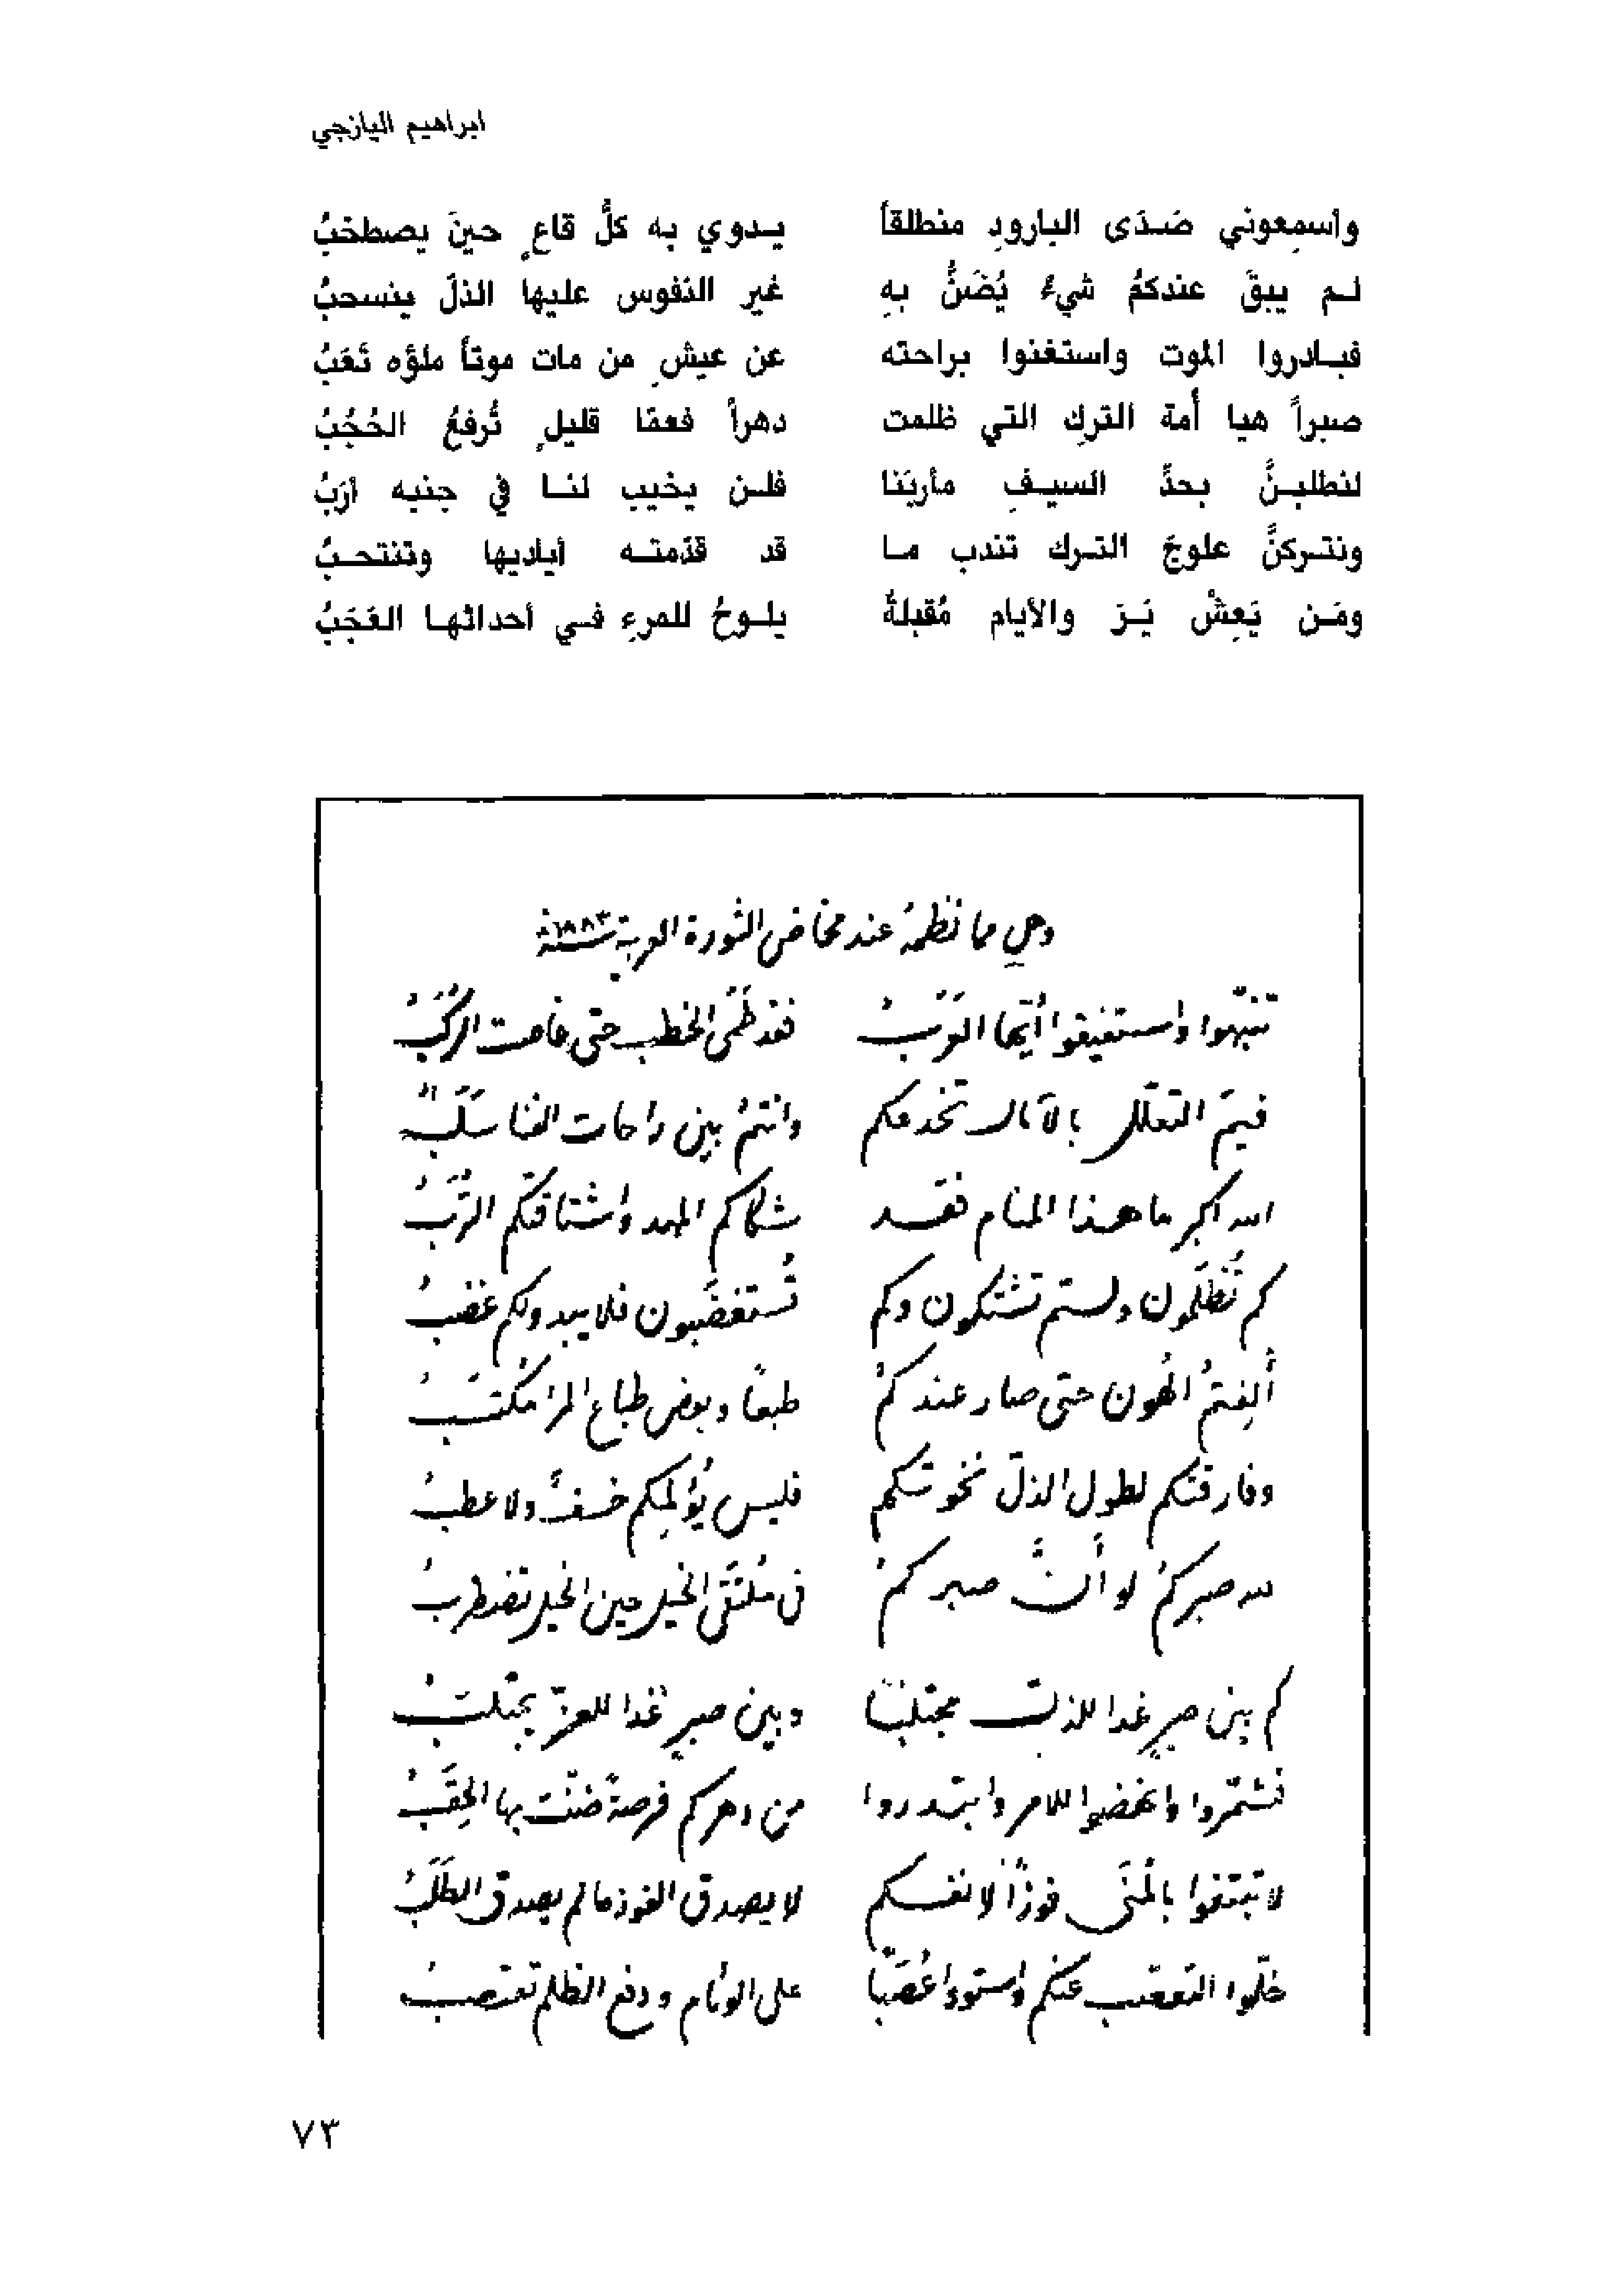 ابراهيم اليازجي
واسمِعوني صَدَى البارودِ منطلقاً يدوي به كلُّ قاعٍ حينَ يصطخبُ
لم يبقَ عندكمُ شيءٌ يُضَنُّ بهِ غير النفوس عليها الذلّ ينسحبُ
فبادروا الموت واستغنوا براحته عن عيشِ من مات موتاً ملؤه تَعَبُ
صبراً هيا أُمة التركِ التي ظلمت دهراً فعمّا قليلٍ تُرفعُ الحُجُبُ
لنطلبنَّ بحدِّ السيفِ مأربَنا فلن يخيب لنا في جنبه أرَبُ
ونتركنَّ علوجَ الترك تندب ما قد قدّمته أياديها وتنتحبُ
ومَن يَعِشْ يَرَ والأيام مُقبلةٌ يلوحُ للمرءِ في أحداثها العَجَبُ
وهي مما نظمهُ عند مخاض الثورة العربية سنة ١٨٨٣
تنبّهوا واستفيقوا أيّها العَرَبُ فقد طَمَى الخطب حتى غاصت الرُكَبُ
فيمَ التعلّل بالآمال تخدعكم وانتمُ بين راحات القنا سَلَبُ
الله اكبر ما هذا المنام فقد شكاكم المهد واشتاقتكم التُرَبُ
كم تُظلَمون ولستم تشتكون وكم تُستغضَبون فلا يبدو لكم غضبُ
أَلِفتمُ الهُون حتى صار عندكمُ طبعًا وبعض طباع المرء مكتسَبُ
وفارقتكم لطول الذلّ نخوتكم فليس يُؤلِمكم خسفٌ ولا عطبُ
لله صبركمُ لو أَنَّ صبركمُ في مُلتَقَى الخيل حين الخيل تضطربُ
كم بين صبرٍ غدا للذلّ مجتلِبًا وبين صبرٍ غدا للعزّ يجتلبُ
فشمّروا وانهضوا للامر وابتدروا من دهركم فرصةً ضنّت بها الحِقَبُ
لا تبتغوا بالمُنَى فوزًا لانفسكم لا يصدق الفوز ما لم يصدق الطَلَبُ
خلّوا التعصّب عنكم واستووا عُصَبًا على الوئام ودفع الظلم تعتصبُ
٧٣